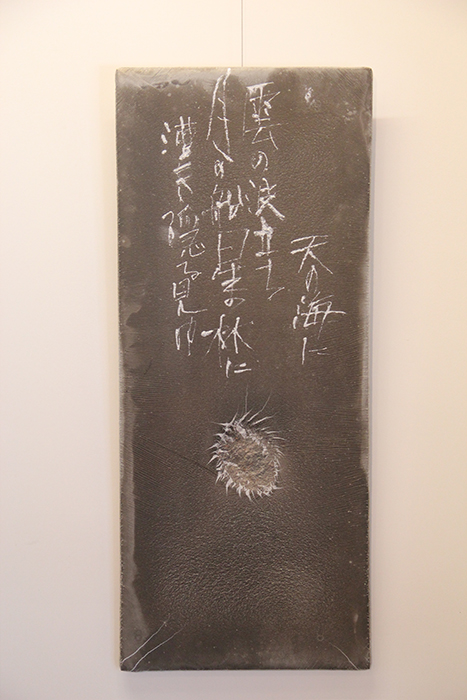 天の海に
雲の波立ち
月の船星の林に
漕ぎ隠る見ゆ